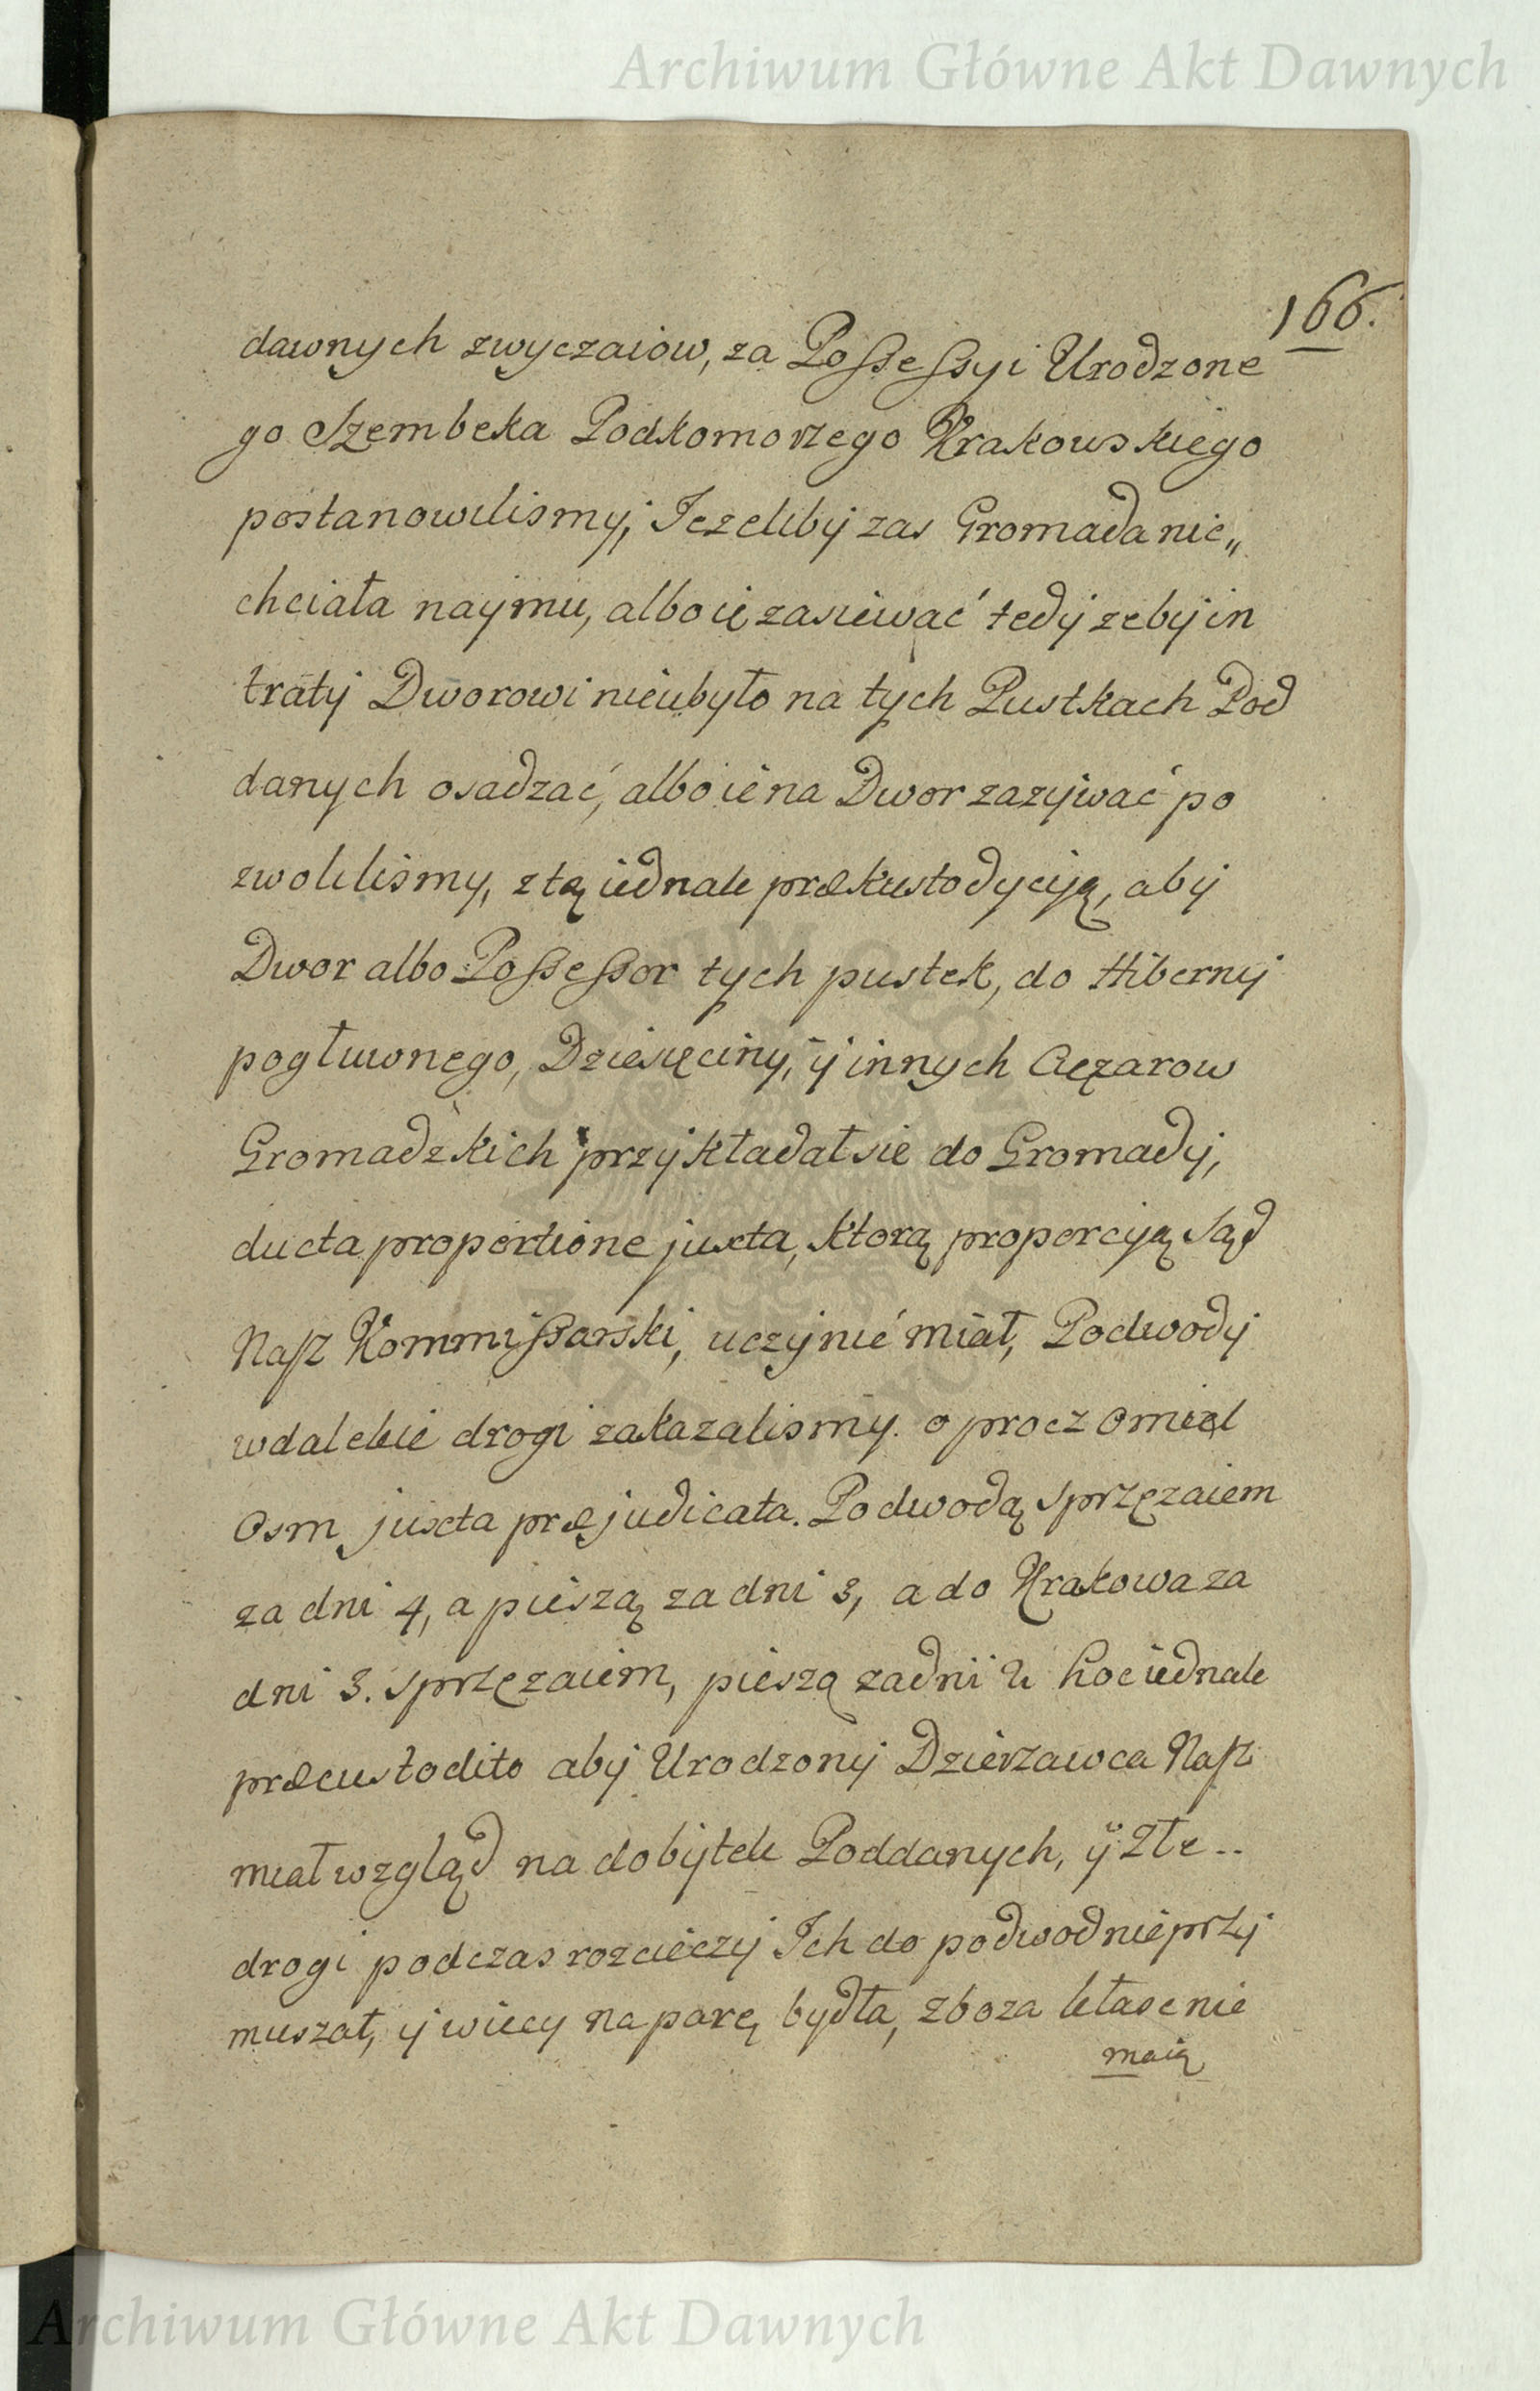 Archiwum Główne Akt Dawnych
166.
dawnych zwyczaiow, za Possessyi Urodzone
go Szembeka Podkomorzego Krakowskiego
postanowilismy, Jezeliby zas Gromada nie„
chciała naymu, albo ie zasiewać tedy zeby in
traty Dworowi nieubyło na tych Pustkach Pod
danych osadzać, albo ie na Dwor zazywać po
zwolilismy, z tą iednak prækustodycyją, aby
Dwor albo Possessor tych pustek, do Hiberny
pogłwonego, Dziesięciny, y innych Cięzarow
Gromadzkich przykładał sie do Gromady,
ducta proportione juxta, ktorą proporcyją Sąd
Nasz Kommissarski, uczynić miał, Podwody
w dalekie drogi zakazalismy. o procz o mil
Osm juxta præjudicata. Podwodą sprzęzaiem
za dni 4, a pieszą za dni 3, a do Krakowa za
dni 3. sprzęzaiem, pieszą za dni 2 hoc iednak
præcustodito aby Urodzony Dzierzawca Nasz
miał wzgląd na dobytek Poddanych, y złe..
drogi podczas rozcieczy Ich do podwod nieprzy
muszał, y wiecy na parę bydła, zboza kłasc nie
maią
Archiwum Główne Akt Dawnych